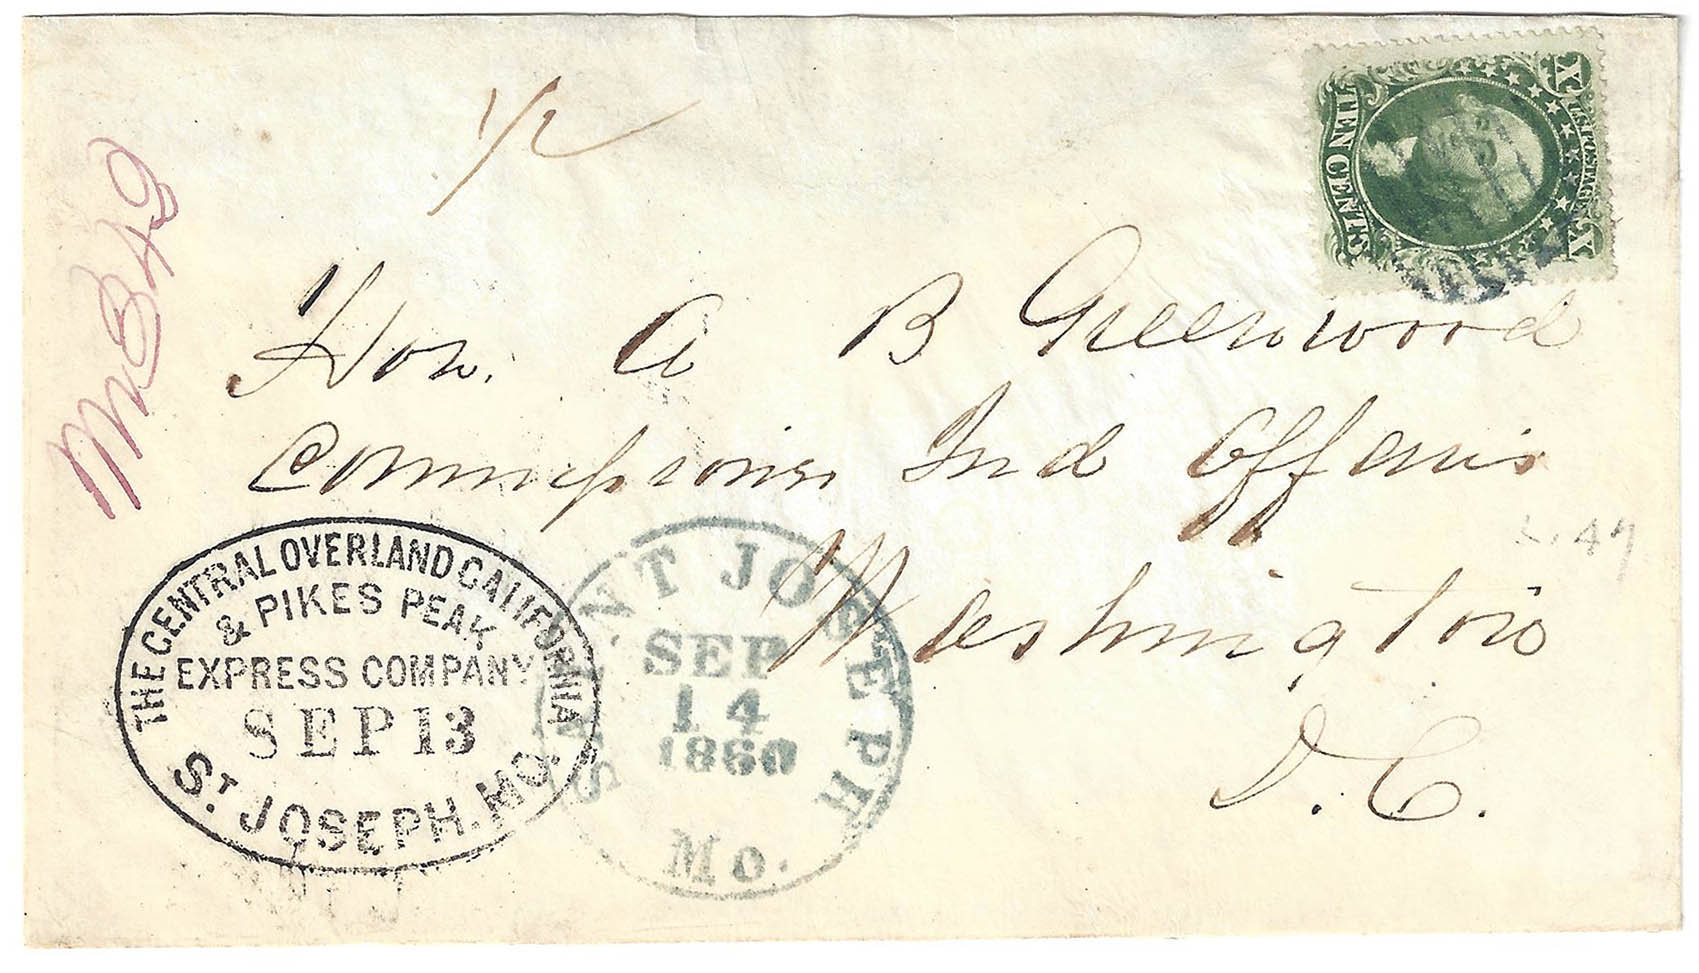 1/2
X U.S. POSTAGE X
TEN CENTS
M 349
Hon. A B Greenwood
Commissioner Ind Affairs
Washington
D. C.
THE CENTRAL OVERLAND CALIFORNIA
& PIKES PEAK
EXPRESS COMPANY
SEP 13
ST. JOSEPH. MO.
SAINT JOSEPH
SEP
14
1860
Mo.